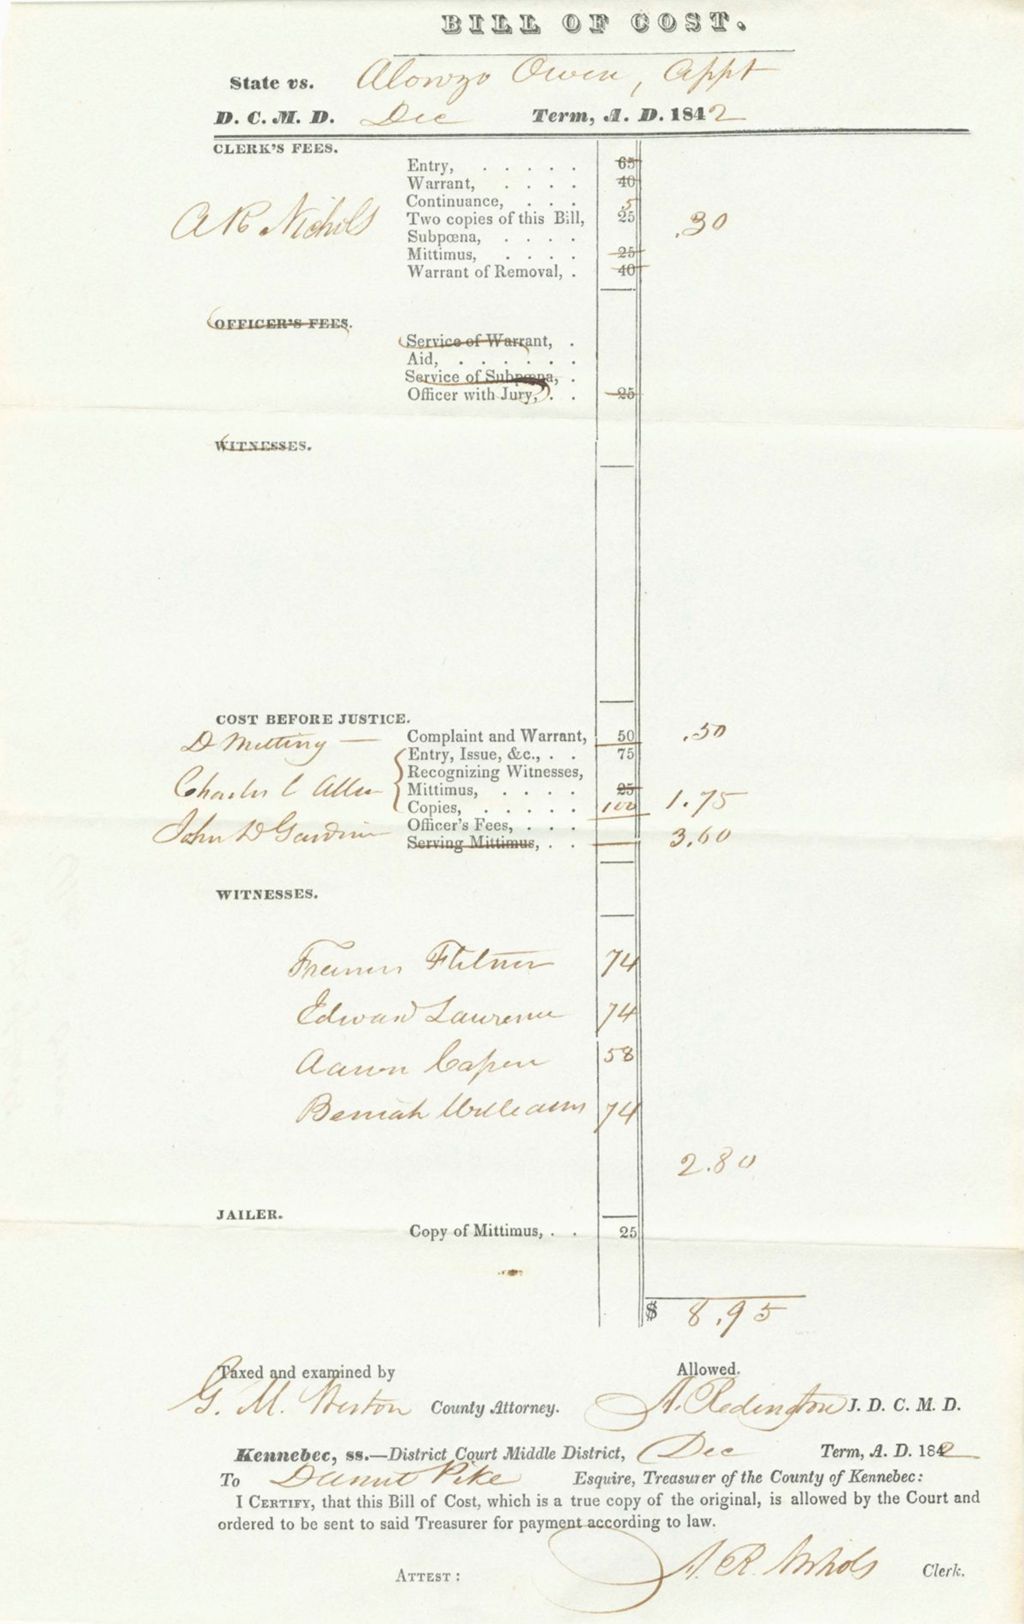 BILL OF COST.
State vs. Alonzo Owen, Appt
D. C. M. D. Dec Term, A. D. 1842
CLERK'S FEES.
Entry, . . . . . 65
Warrant, . . . . 40
Continuance, . . . 5
A R Nichols Two copies of this Bill, 25 .30
Subpœna, . . . .
Mittimus, . . . . 25
Warrant of Removal, . 40
OFFICER'S FEES.
Service of Warrant, .
Aid, . . . . . .
Service of Subpœna, .
Officer with Jury, . . 25
WITNESSES.
COST BEFORE JUSTICE.
D Complaint and Warrant, 50 .50
Entry, Issue, &c., . . 75
Recognizing Witnesses,
Charles C Allen Mittimus, . . . . 25
Copies, . . . . . 100 1.75
John D Gardiner Officer's Fees, . . . 3.60
Serving Mittimus, . .
WITNESSES.
Francis Flitner 74
Edward Lawrence 74
Aaron Capen 58
Beniah Williams 74
2.80
JAILER.
Copy of Mittimus, . . 25
$ 8.95
Taxed and examined by Allowed.
G. M. Weston County Attorney. A. Redington J. D. C. M. D.
Kennebec, ss.—District Court Middle District, Dec Term, A. D. 1842
To Daniel Pike Esquire, Treasurer of the County of Kennebec:
I CERTIFY, that this Bill of Cost, which is a true copy of the original, is allowed by the Court and
ordered to be sent to said Treasurer for payment according to law.
ATTEST: A. R. Nichols Clerk.